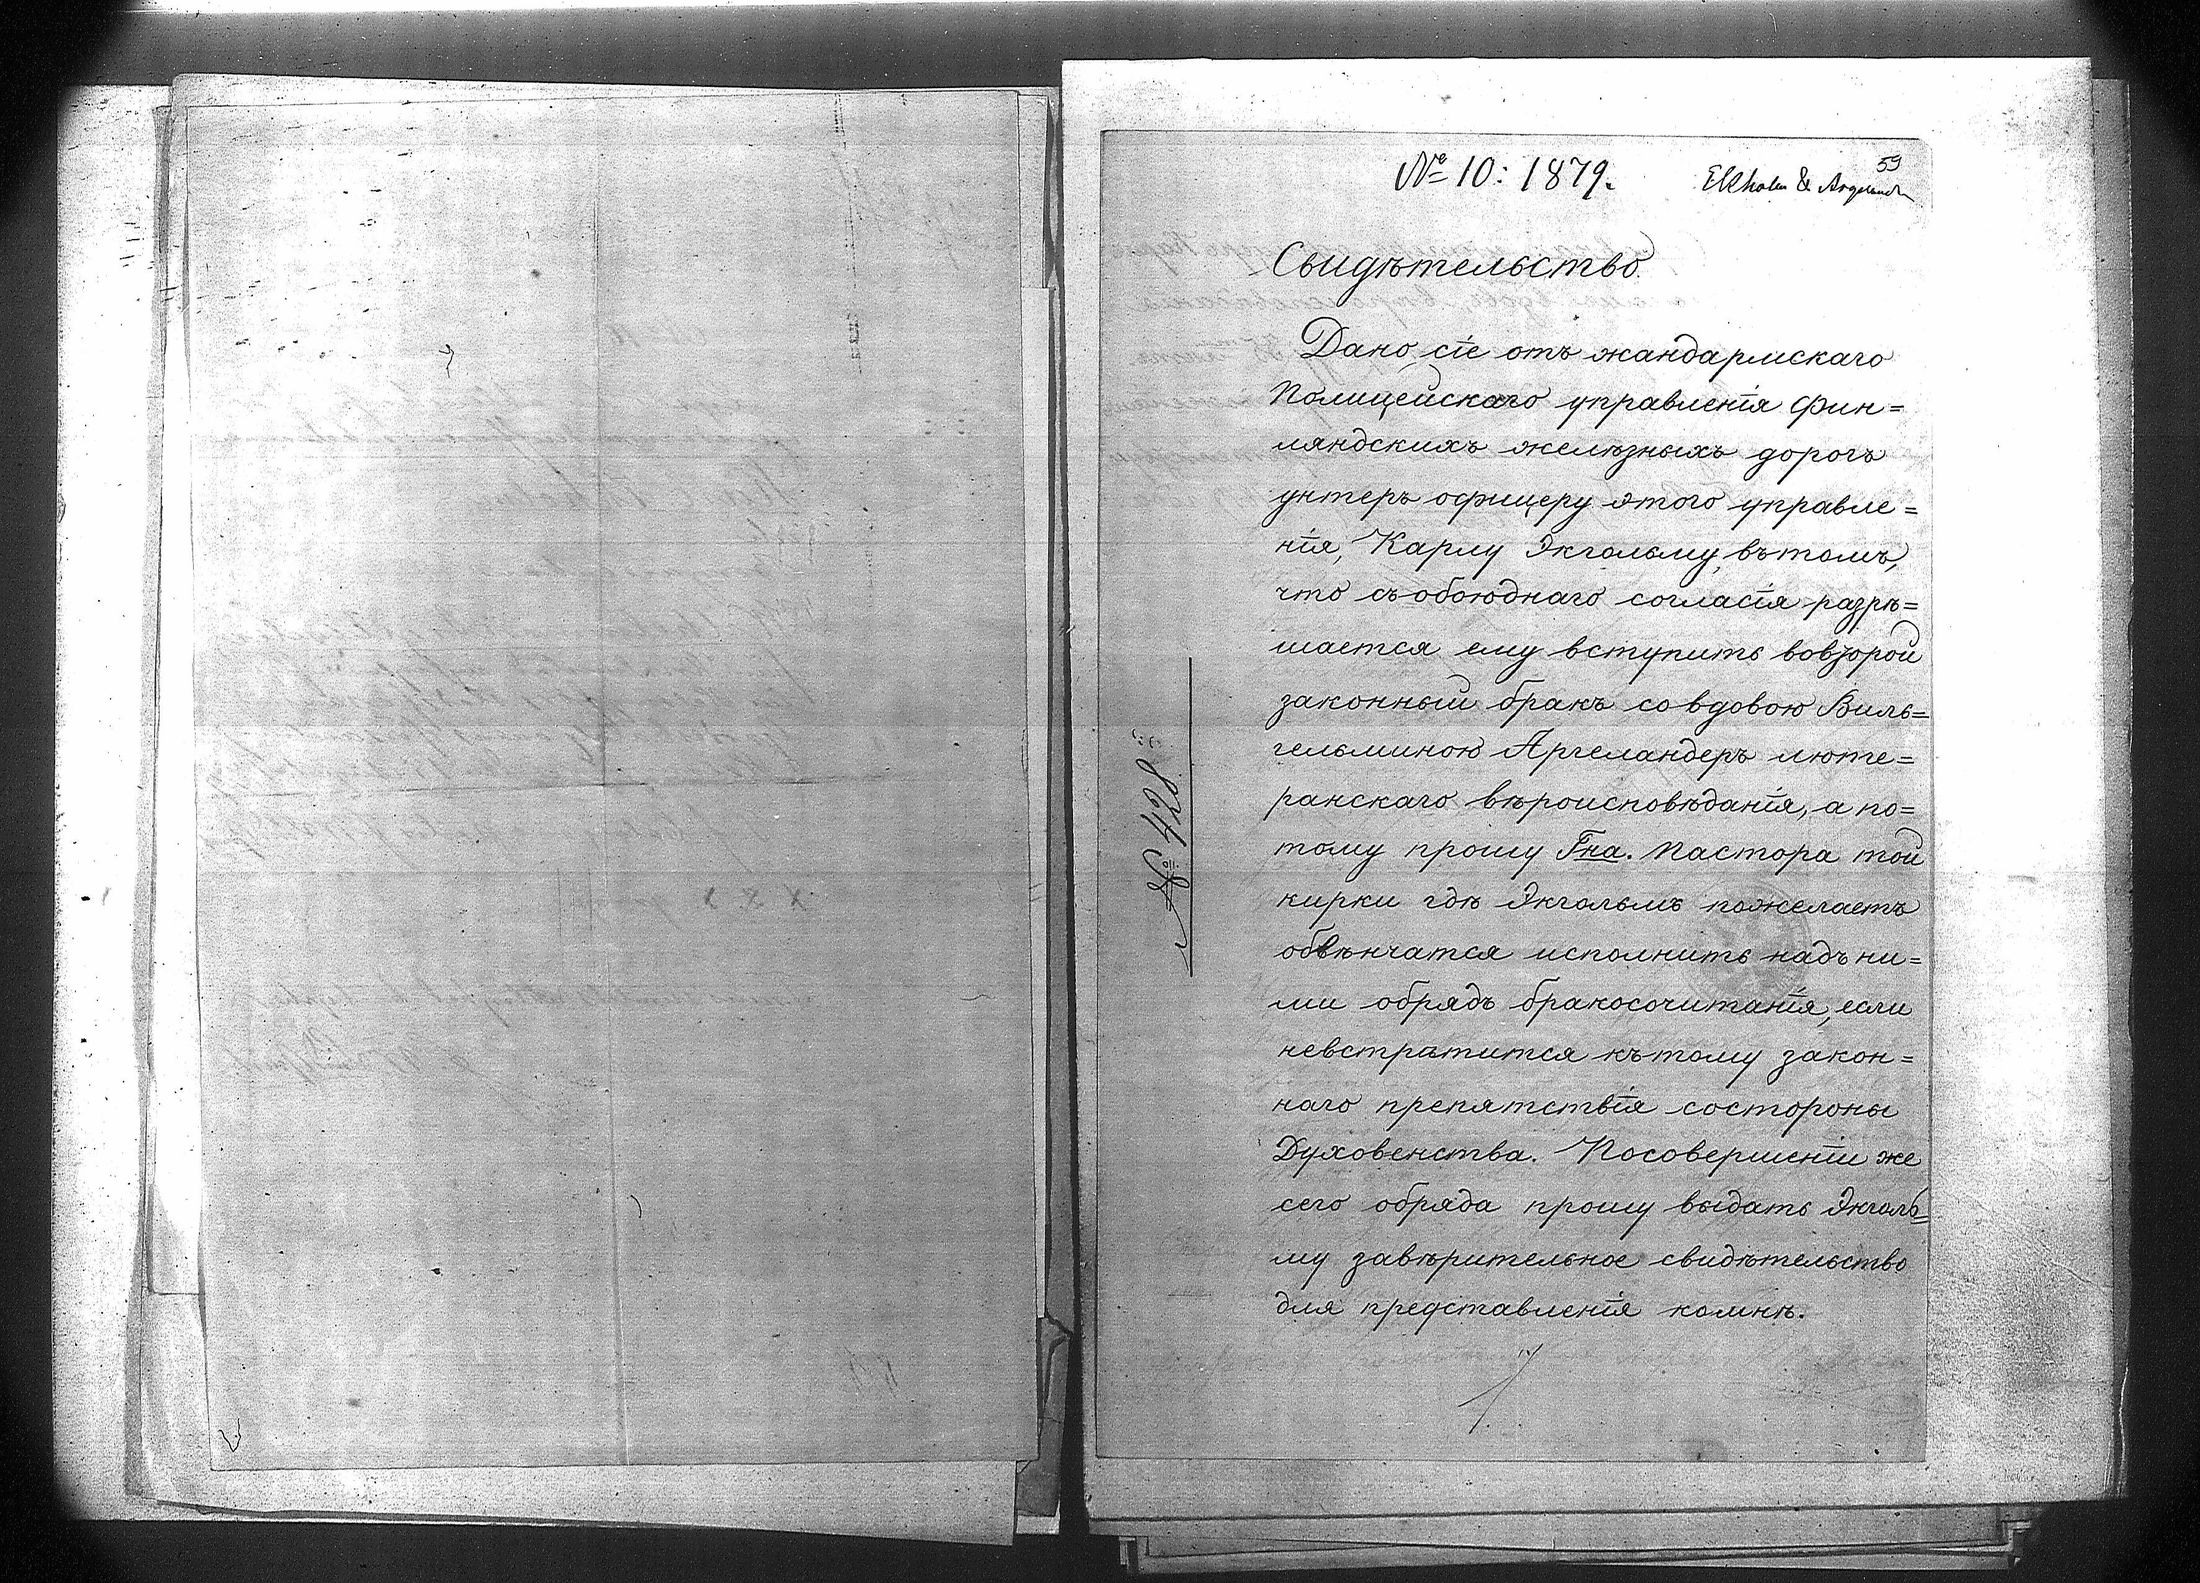 59
№ 10: 1879.
Ekholm & Argelander
Свидѣтельство.
Дано сіе отъ жандармскаго
Полицейскаго управленія Фин=
ляндскихъ желѣзныхъ дорогъ
унтеръ офицеру этого управле=
нія, Карлу Экгольму, въ томъ,
что съ обоюднаго согласія разрѣ=
шается ему вступить вовторой
законный бракъ со вдовою Виль=
гельминою Аргеландеръ люте=
ранскаго вѣроисповѣданія, а по=
тому прошу Гна. Пастора той
кирки гдѣ Экгольмъ пожелаетъ
обвѣнчатся исполнить надъ ни=
ми обрядъ бракосочитанія, если
невстрѣтится къ тому закон=
наго препятствія состороны
Духовенства. Посовершеніи же
сего обряда прошу выдать Экголь=
му завѣрительное свидѣтельство
для представленія комнѣ.
№ 428.